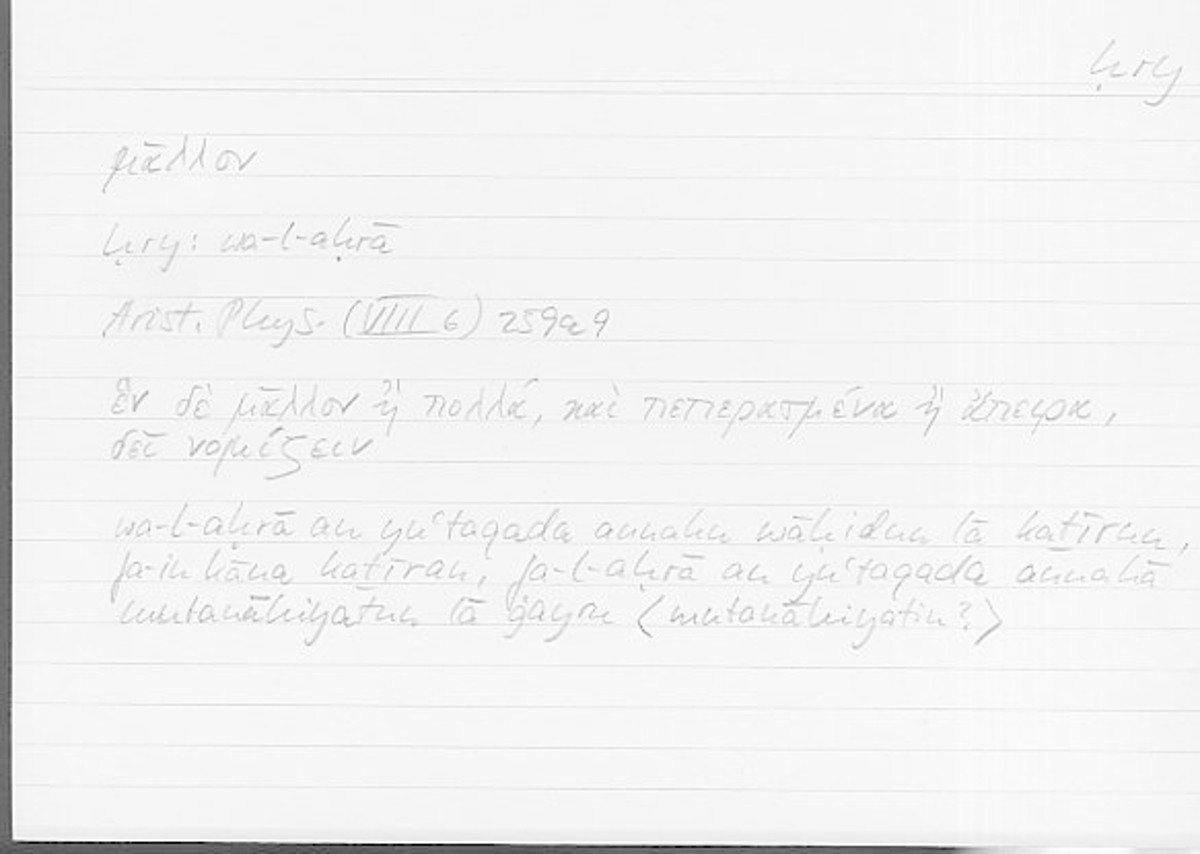 ḥry
μᾶλλον
ḥry: wa-l-aḥrā
Arist. Phys. (VIII 6) 259a9
ἓν δὲ μᾶλλον ἢ πολλά, καὶ πεπερασμένα ἢ ἄπειρα,
δεῖ νομίζειν
wa-l-aḥrā an yuʿtaqada annahu wāḥidun lā kaṯīrun,
fa-in kāna kaṯīran, fa-l-aḥrā an yuʿtaqada annahā
mutanāhiyatun lā ġayru ⟨mutanāhiyatin?⟩